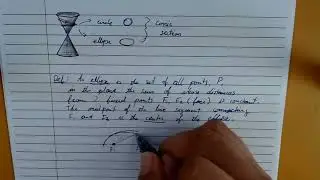 circle
Conic
section
ellipse
Def: An ellipse is the set of all points P
in the plane the sum of whose distances
from 2 fixed points F₁, F₂ (foci) is constant.
The midpoint of the line segment connecting
F₁ and F₂ is the center of the ellipse.
F₁